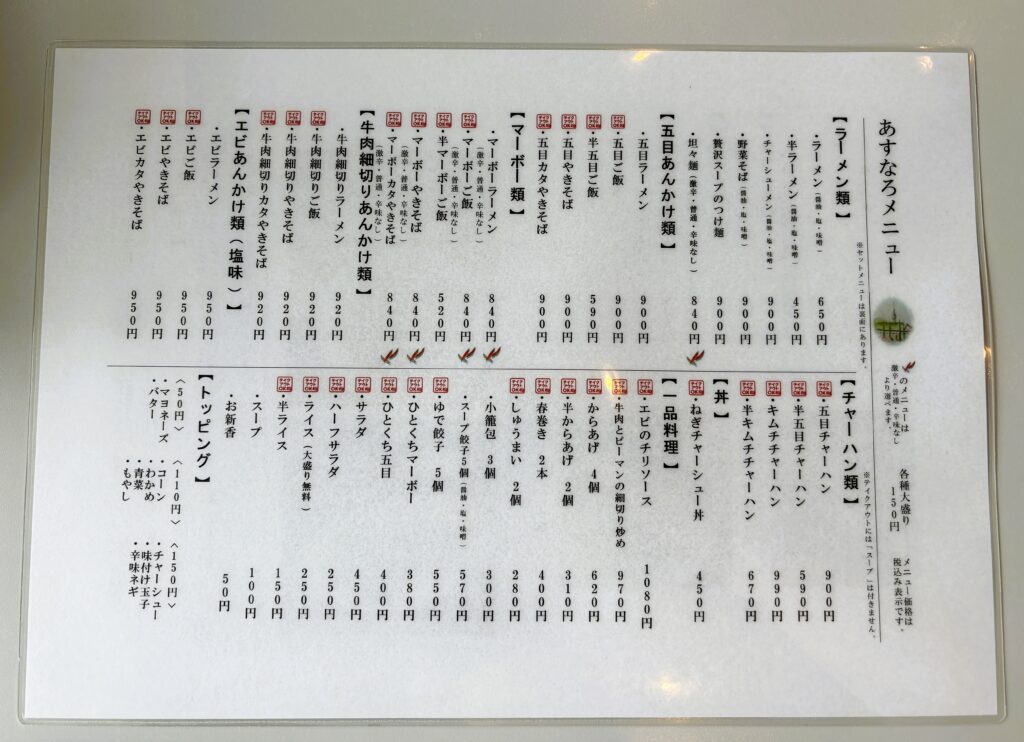 あすなろメニュー
のメニューは
激辛・普通・辛味なし
より選べます。
各種大盛り
150円
メニュー価格は
税込み表示です。
※セットメニューは裏面にあります。
【ラーメン類】
・ラーメン(醤油・塩・味噌) 650円
・半ラーメン(醤油・塩・味噌) 450円
・チャーシューメン(醤油・塩・味噌) 900円
・野菜そば(醤油・塩・味噌) 900円
・贅沢スープのつけ麺 900円
・坦々麺(激辛・普通・辛味なし) 840円
【五目あんかけ類】
・五目ラーメン 900円
・五目ご飯 900円
・半五目ご飯 590円
・五目やきそば 900円
・五目カタやきそば 900円
【マーボー類】
・マーボーラーメン 840円
(激辛・普通・辛味なし)
・マーボーご飯 840円
(激辛・普通・辛味なし)
・半マーボーご飯 520円
(激辛・普通・辛味なし)
・マーボーやきそば 840円
(激辛・普通・辛味なし)
・マーボーカタやきそば 840円
(激辛・普通・辛味なし)
【牛肉細切りあんかけ類】
・牛肉細切りラーメン 920円
・牛肉細切りご飯 920円
・牛肉細切りやきそば 920円
・牛肉細切りカタやきそば 920円
【エビあんかけ類(塩味)】
・エビラーメン 950円
・エビご飯 950円
・エビやきそば 950円
・エビカタやきそば 950円
※テイクアウトには「スープ」は付きません。
【チャーハン類】
・五目チャーハン 900円
・半五目チャーハン 590円
・キムチチャーハン 990円
・半キムチチャーハン 670円
【丼】
・ねぎチャーシュー丼 450円
【一品料理】
・エビのチリソース 1080円
・牛肉とピーマンの細切り炒め 970円
・からあげ 4個 620円
・半からあげ 2個 310円
・春巻き 2本 400円
・しゅうまい 2個 280円
・小籠包 3個 300円
・スープ餃子5個(醤油・塩・味噌) 570円
・ゆで餃子 5個 550円
・ひとくちマーボー 380円
・ひとくち五目 400円
・サラダ 450円
・ハーフサラダ 250円
・ライス(大盛り無料) 250円
・半ライス 150円
・スープ 100円
・お新香 50円
【トッピング】
〈50円〉
・マヨネーズ
・バター
〈110円〉
・コーン
・わかめ
・青菜
・もやし
〈150円〉
・チャーシュー
・味付け玉子
・辛味ネギ